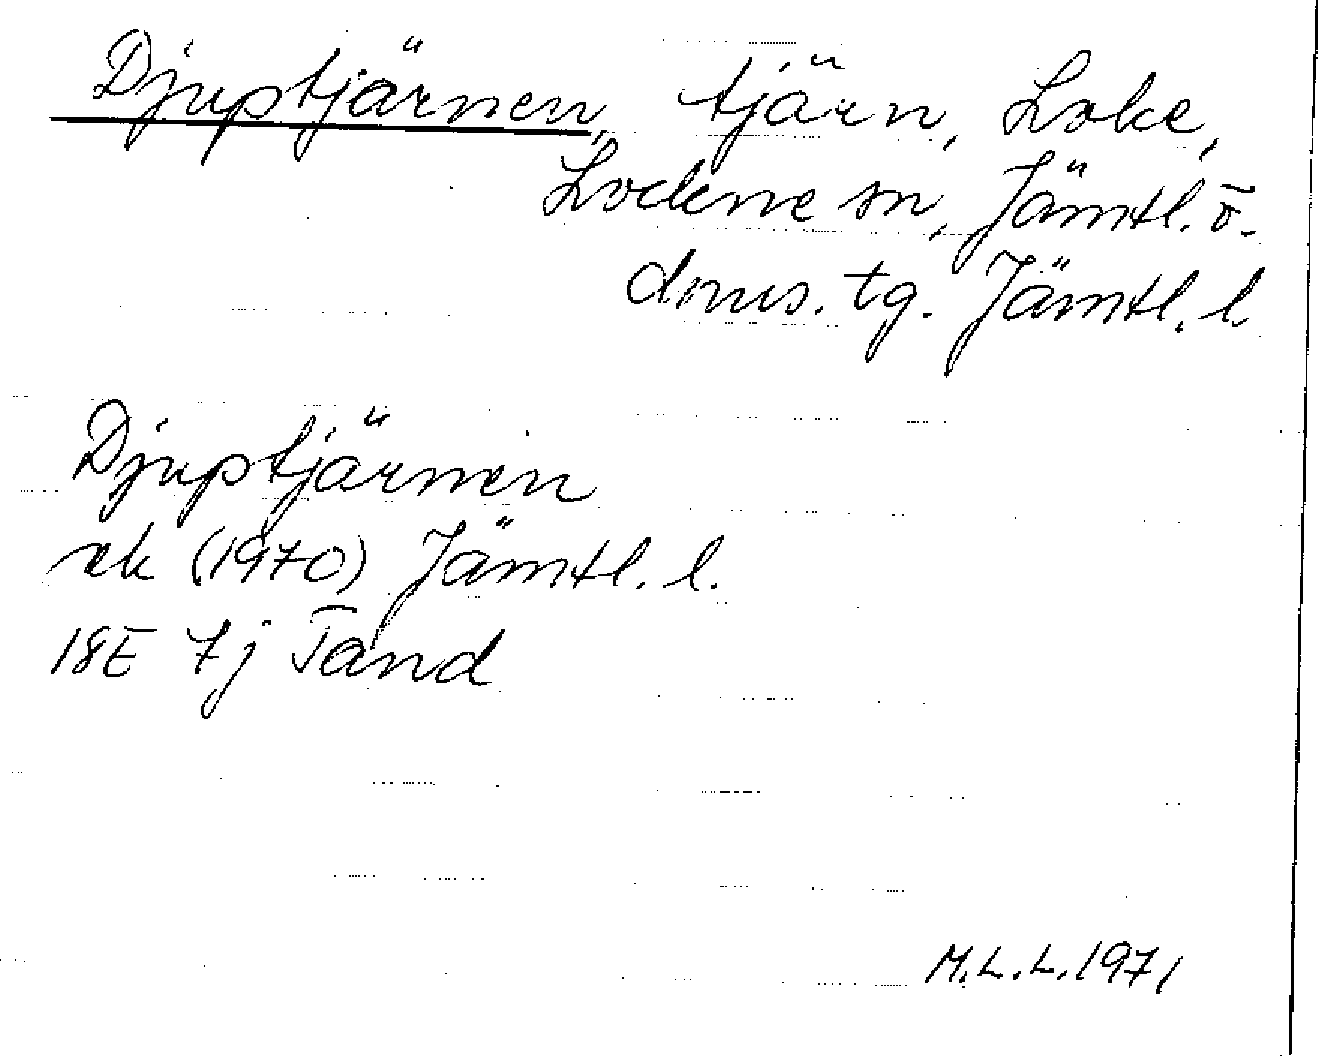 Djuptjärnen, tjärn, Loke,
Lockne sn, Jämtl. ö.
dms. tg. Jämtl. l
Djuptjärnen
ek (1970) Jämtl. l.
18E 7j Tand
M.L.L. 1971